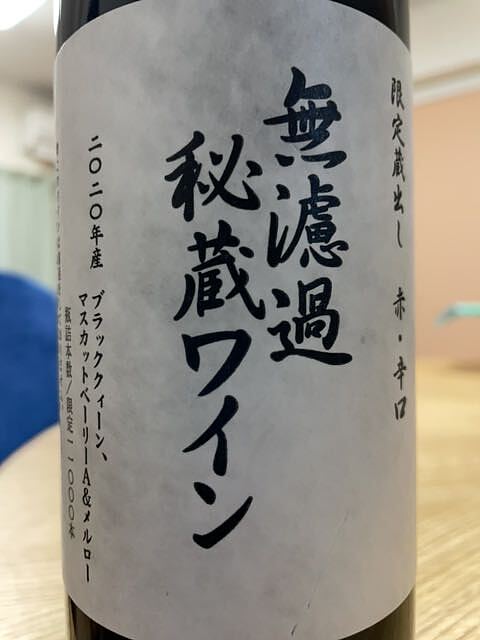 限定蔵出し　赤・辛口
無濾過
秘蔵ワイン
二〇二〇年産　ブラッククィーン、
マスカットベーリーA&メルロー
瓶詰本数／限定一一〇〇〇本